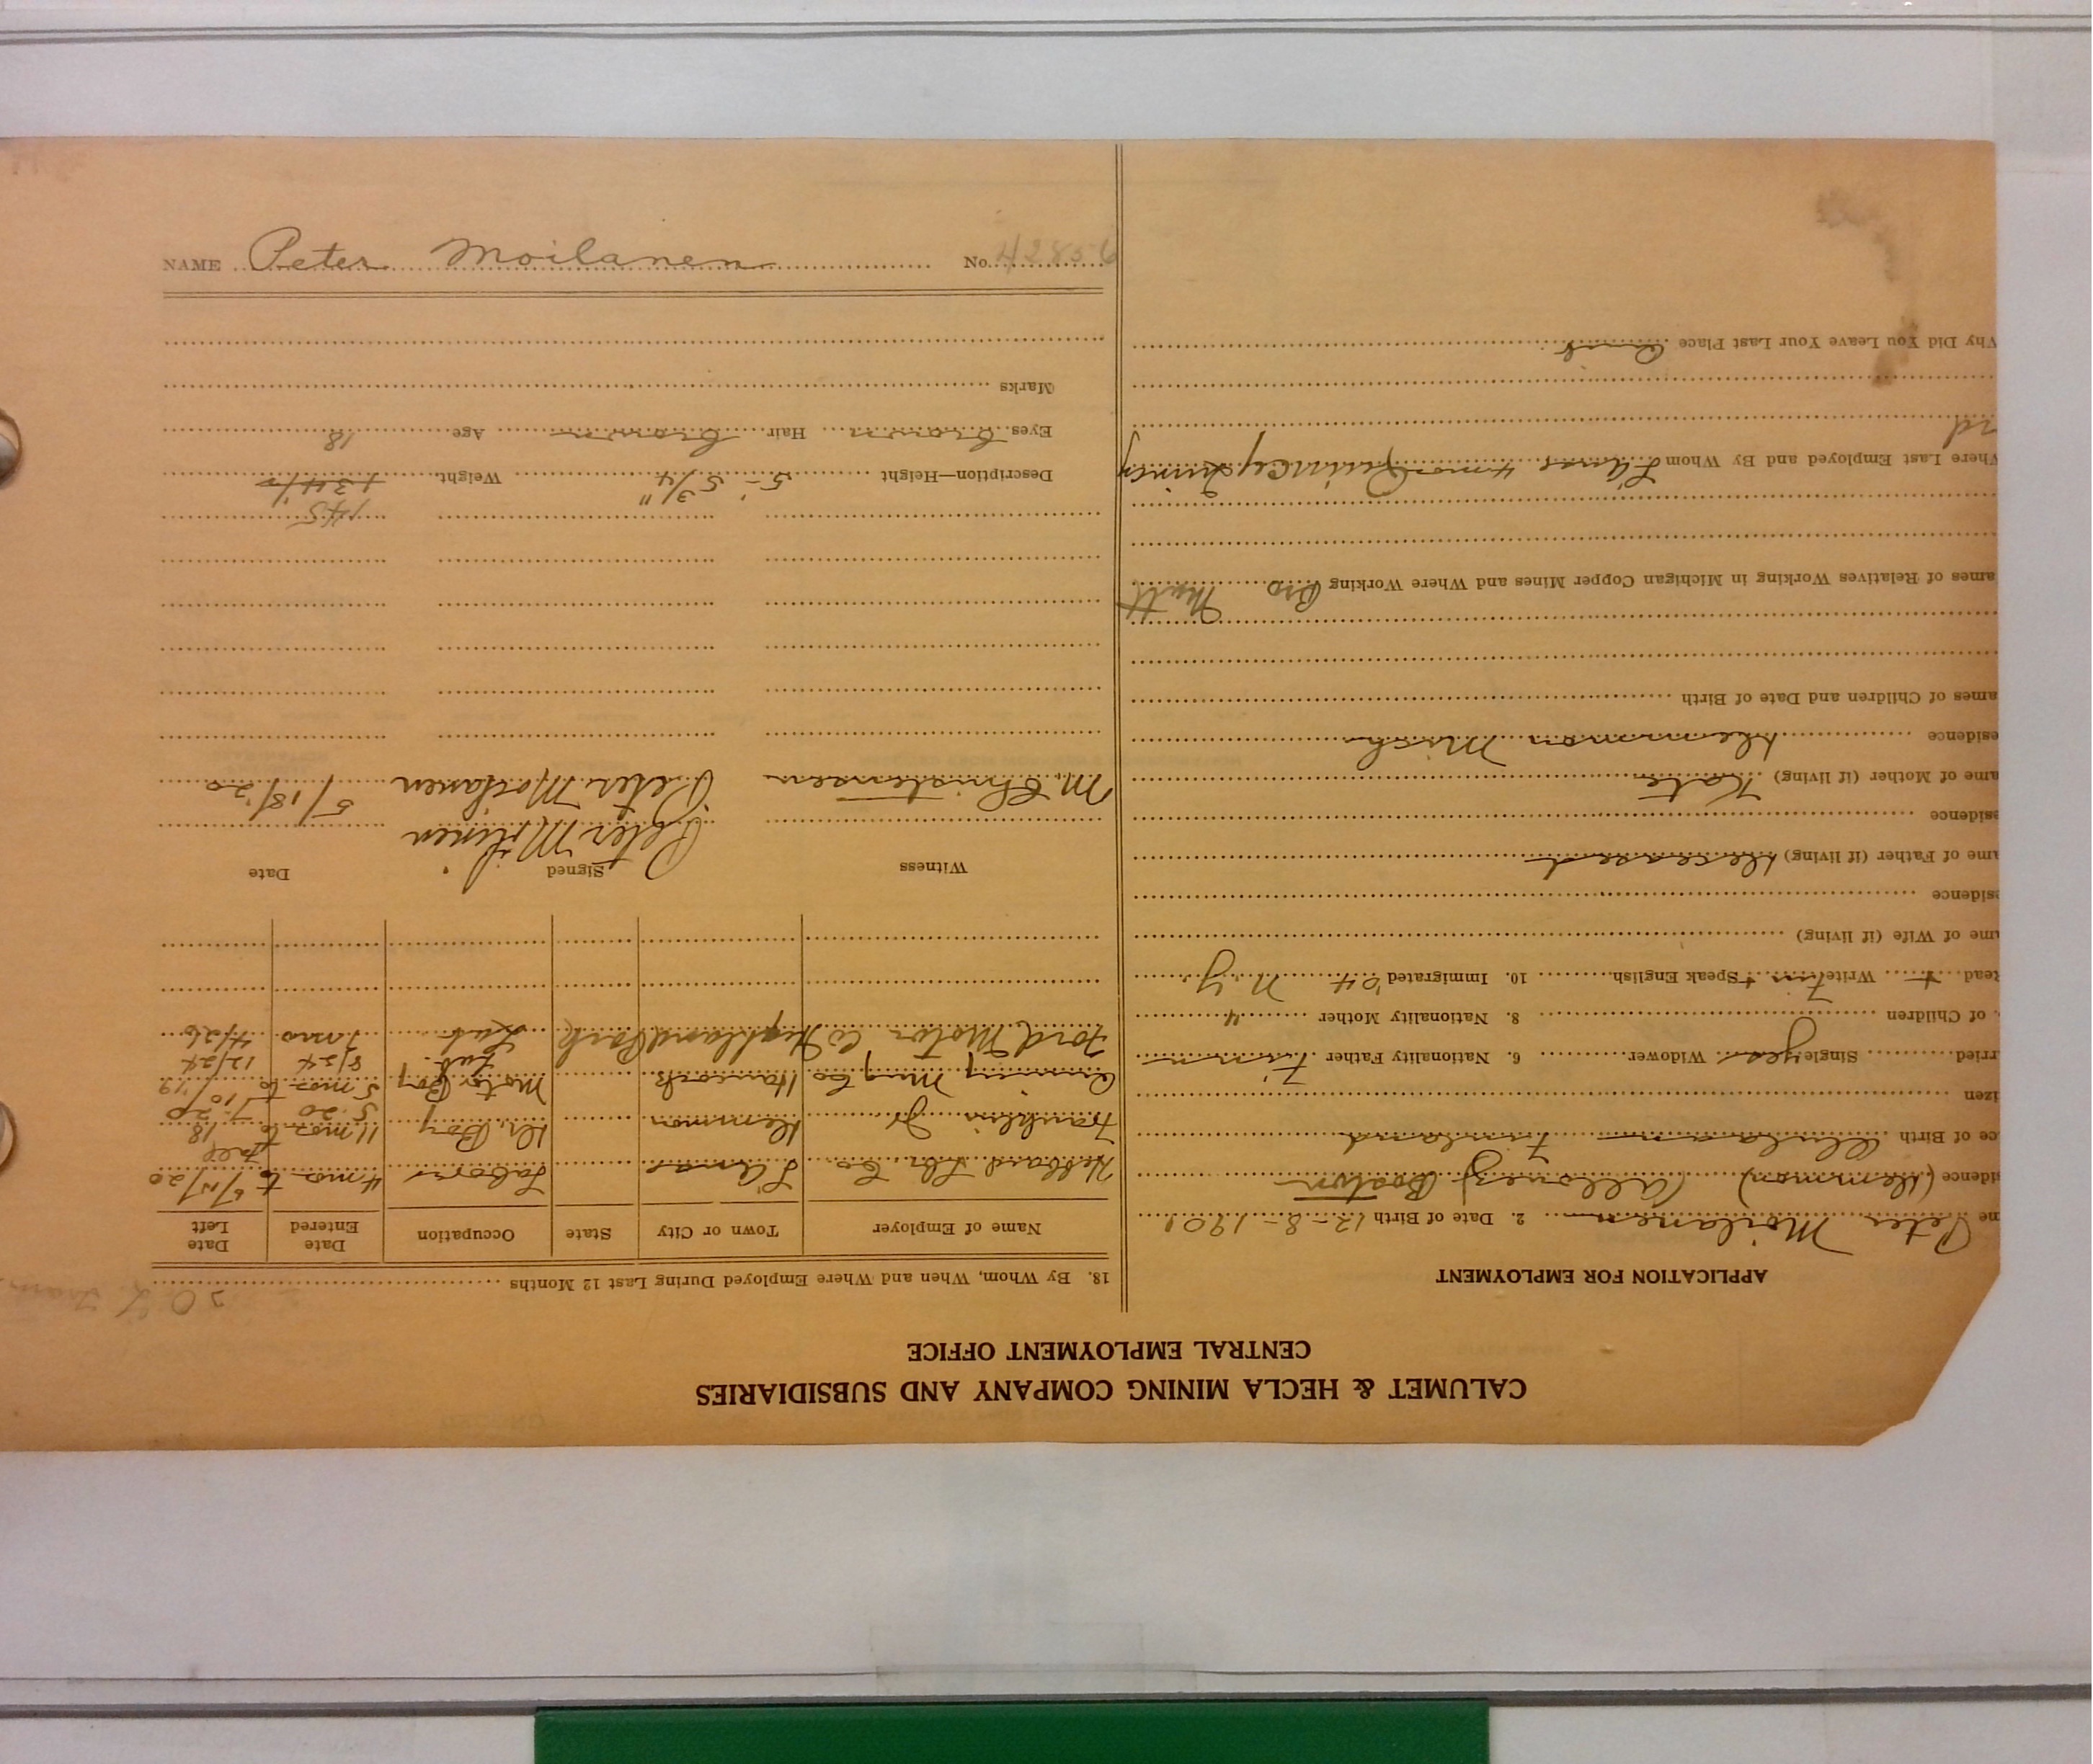 CALUMET & HECLA MINING COMPANY AND SUBSIDIARIES
CENTRAL EMPLOYMENT OFFICE
APPLICATION FOR EMPLOYMENT
me Peter Moilanen 2. Date of Birth 12-8-1901
sidence (Kemmon) (Allouez) Boston
ce of Birth Finland
izen
rried Single yes Widower 6. Nationality Father Finn
. of Children 8. Nationality Mother "
Read + Write Fin + Speak English 10. Immigrated '04 N.Y.
ame of Wife (if living)
esidence
ame of Father (if living) deceased
esidence
ame of Mother (if living) Kate
esidence Mich
ames of Children and Date of Birth
ames of Relatives Working in Michigan Copper Mines and Where Working Bro Matt
Where Last Employed and By Whom L'Anse 4 mos Quincy Quincy
rd
Why Did You Leave Your Last Place Quit
18. By Whom, When and Where Employed During Last 12 Months
Name of Employer Town or City State Occupation Date Entered Date Left
Hebbard Lbr. Co. L'Anse Laborer 4 mos to 5/15/20
Franklin Jr. Dr. Boy 11 mos to Fall 18
5-20 7-20
Quincy Mng Co Hancock Motor Boy 5 mos to 10/19
Lab. 8/24 12/24
Ford Motor Co Highland Park Lab. 1 mo 4/26
Witness Signed Date
Peter Moilinen
M. Christensen Peter Moilanen 5/18/20
145
Description—Height 5'-5 3/4" Weight 134 1/2
Eyes brown Hair brown Age 18
Marks
NAME Peter Moilanen No. 42856